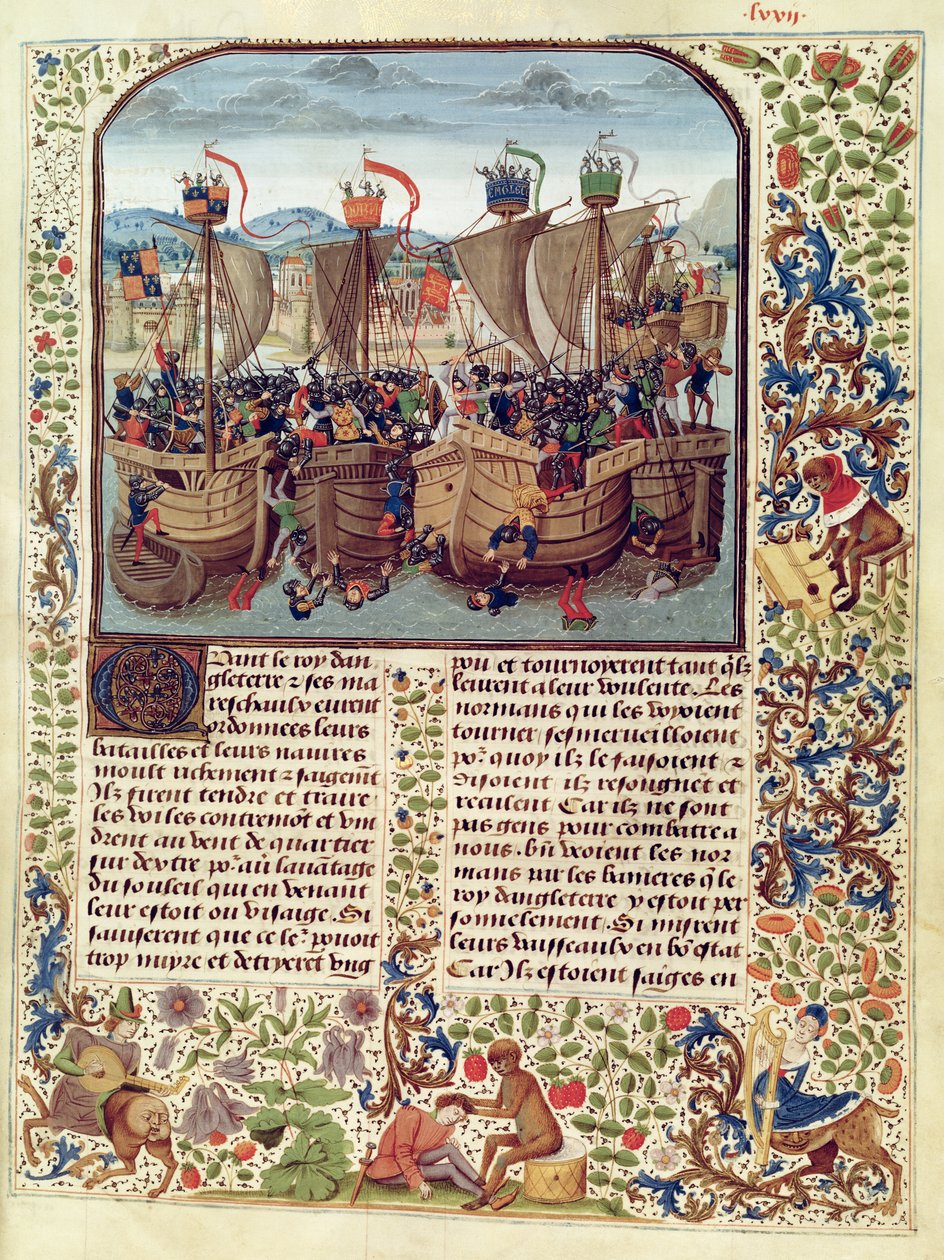 .lxxij.
Quant le roy dan
gleterre & ses ma
reschaulx eurent
ordonnees leurs
batailles et leurs navires
moult richement & saigem̄t
Ilz firent tendre et traire
les voiles contremōt et vin
drent au vent de quartier
sur dextre po⁹ av̄ lavātage
du souleil qui en venant
leur estoit ou visaige. Si
saviserent que ce le⁹ povoit
trop nuyre et detryerēt ung
pou et tournoyerent tant q̄lz
leurent a leur voulente. Les
normans qui les voyoient
tourner sesmerveilloient
po⁹ quoy ilz le faisoient &
disoient ilz resongnēt et
reculent Car ilz ne sont
pas gens pour combatre a
nous. bn̄ veoient les nor
mans par les banieres q̄ le
roy dangleterre y estoit per
sonnelement. Si misrent
leurs vaisseaulx en bō estat
Car Ilz estoient saiges en